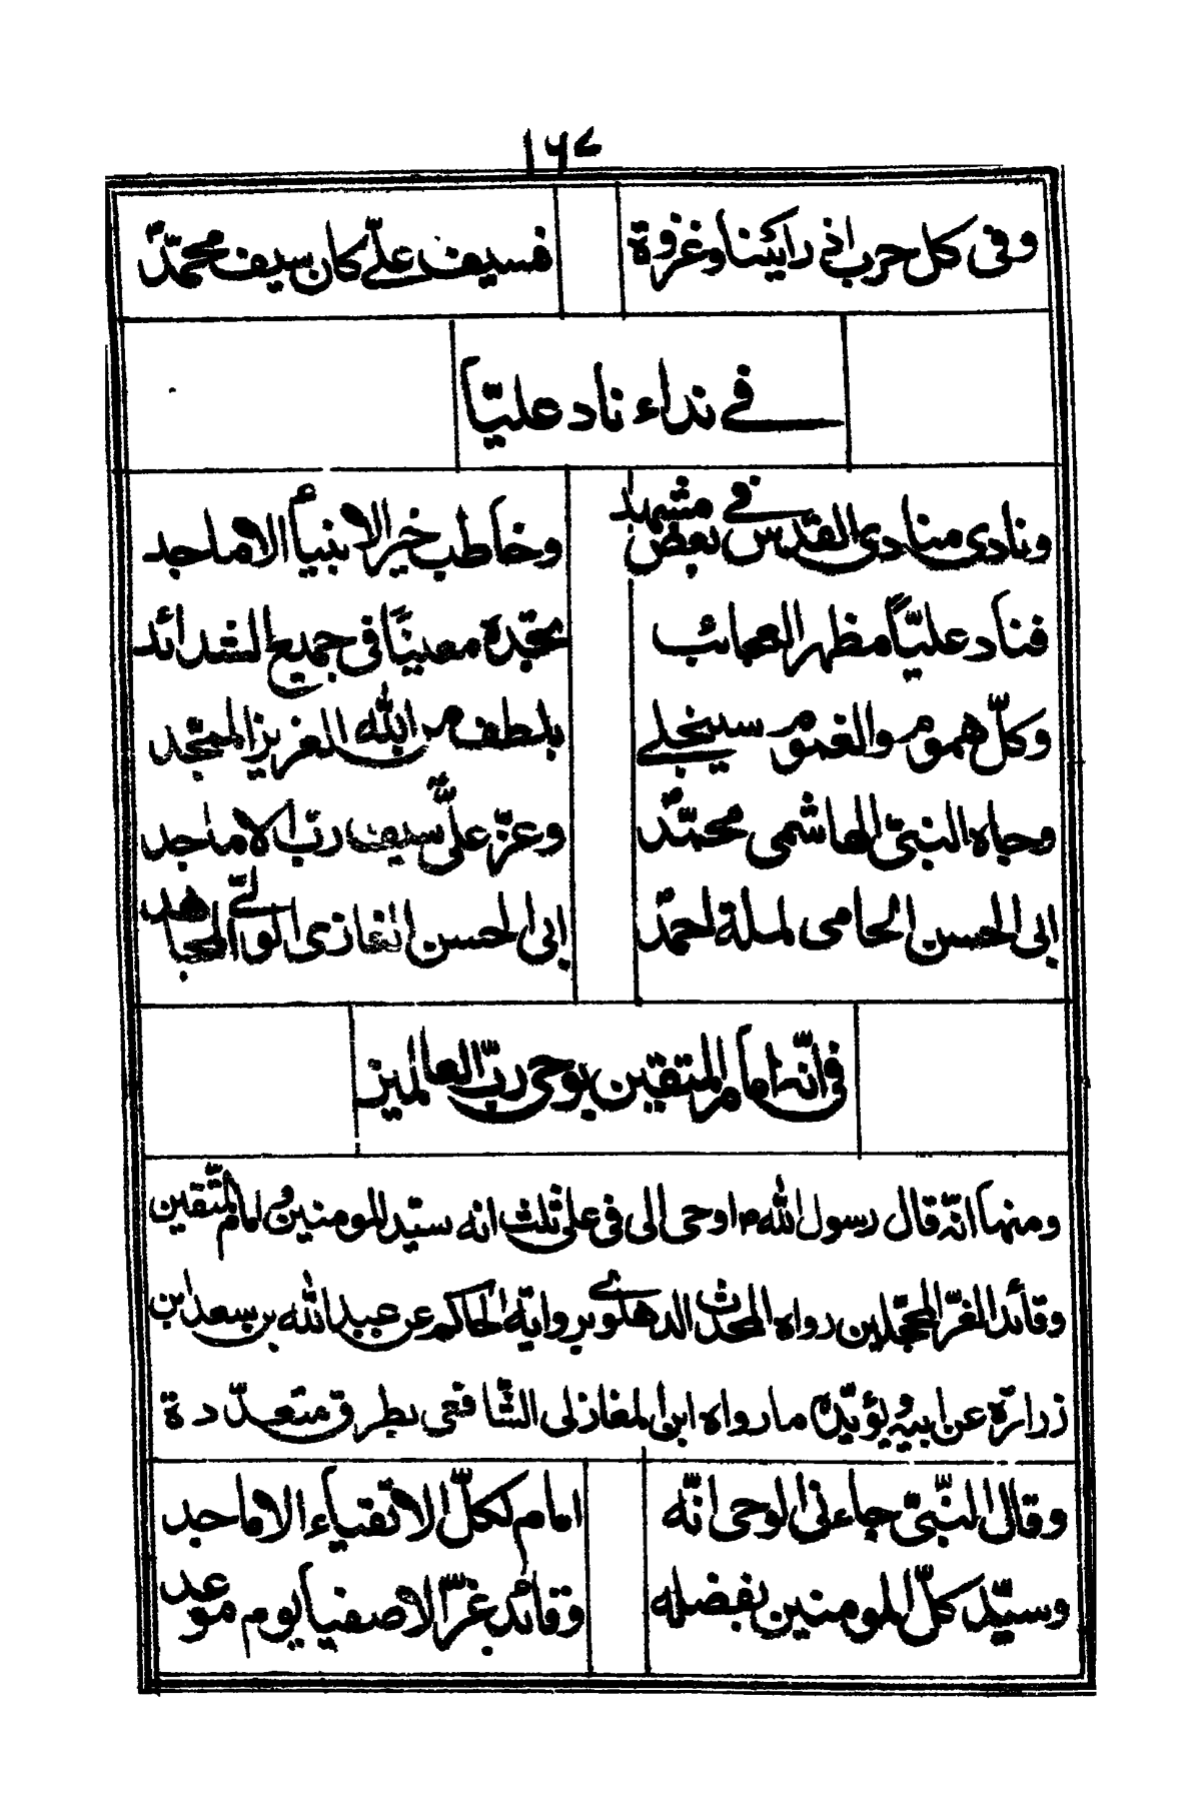 ١٦٧
وفى كل حرب اذ رائينا وغزوة فسيف علىّ كان سيف محمّدٌ
فى نداء ناد عليّا
ونادى منادى القدس فى بعض مشهد وخاطب خير الانبيأ الاماجد
فناد عليّاً مظهر العجائب تجّده معينًا فى جميع الشدائد
وكلّ هموم والغموم سينجلى بلطف من الله العزيز الممجّد
وجاه النبىّ الهاشمى محمّدٌ وعزّ علىٌّ سيف ربّ الاماجد
ابى الحسن الحامى لملة احمدٌ ابى الحسن الغازى الولىّ المجاهد
فى انّه امام المتقين بوحى ربّ العالمين
ومنها انّه قال رسول اللّٰه م اوحى الى فى على ثلث انه سيّد المومنين و امام المتّقين
وقائد الغرّ المحجّلين رواه المحدث الدهلوى برواية الحاكم عن عبد اللّٰه بن سعد ابن
زرارة عن ابيه و يؤيّده ما رواه ابن المغازلى الشّافعى بطرق متعدّدة
وقال النّبىّ جاءنى الوحى انّه امام لكلّ الاتقياء الاماجد
وسيّد كلّ المومنين بفضله وقائد غرّ الاصفيأ يوم موعد